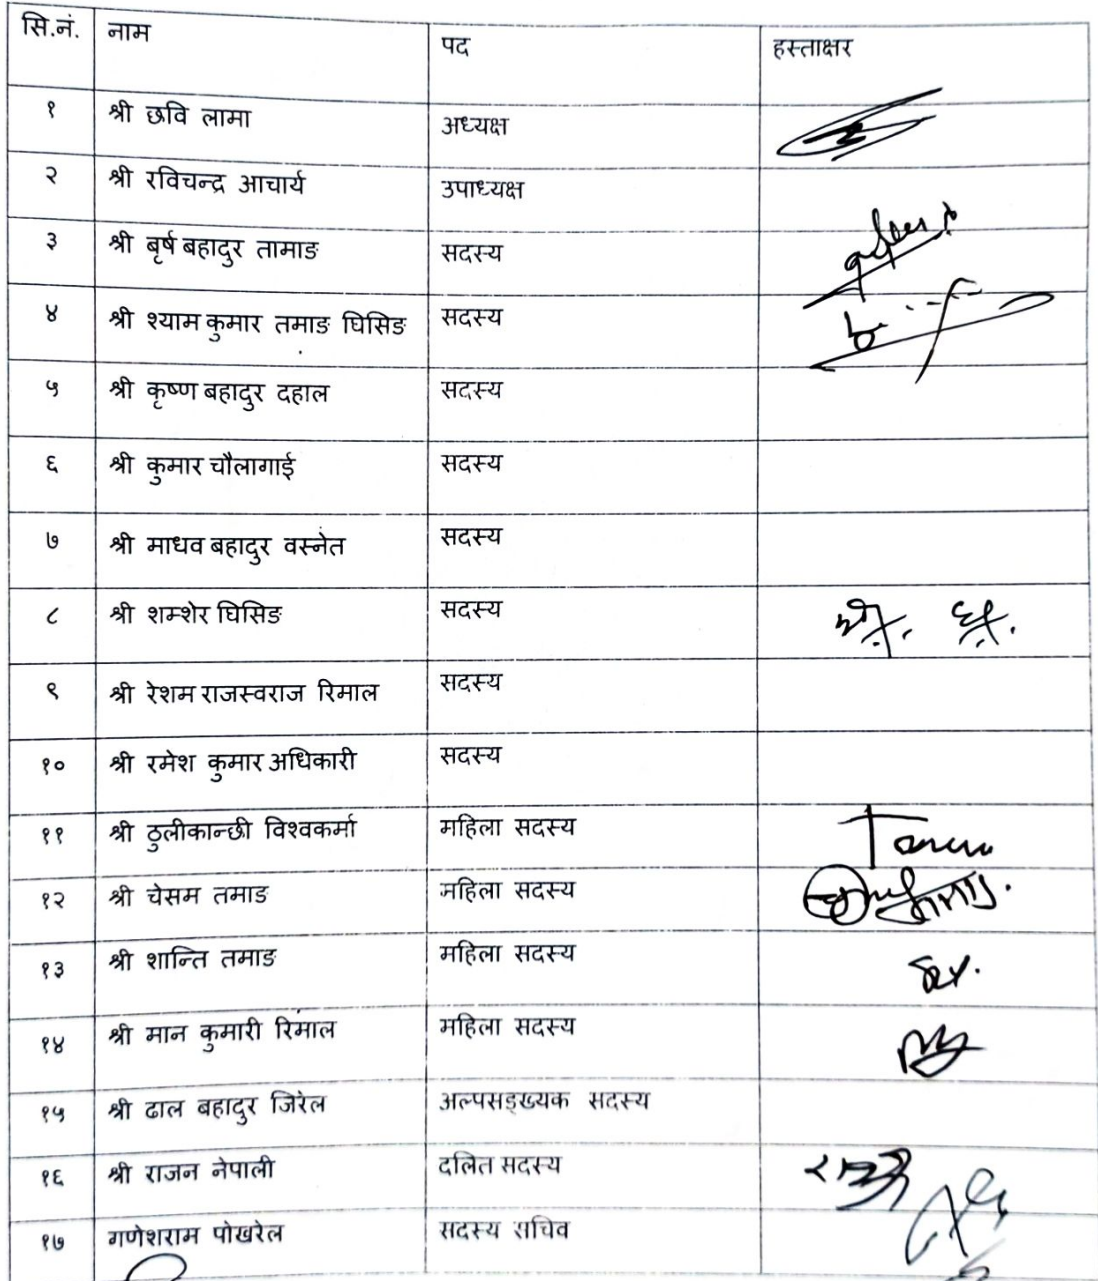 सि.नं. नाम पद हस्ताक्षर
१ श्री छवि लामा अध्यक्ष
२ श्री रविचन्द्र आचार्य उपाध्यक्ष
३ श्री बृर्ष बहादुर तामाङ सदस्य
४ श्री श्याम कुमार तमाङ घिसिङ सदस्य
५ श्री कृष्ण बहादुर दहाल सदस्य
६ श्री कुमार चौलागाई सदस्य
७ श्री माधव बहादुर वस्नेत सदस्य
८ श्री शम्शेर घिसिङ सदस्य
९ श्री रेशम राजस्वराज रिमाल सदस्य
१० श्री रमेश कुमार अधिकारी सदस्य
११ श्री ठुलीकान्छी विश्वकर्मा महिला सदस्य
१२ श्री चेसम तमाङ महिला सदस्य
१३ श्री शान्ति तमाङ महिला सदस्य
१४ श्री मान कुमारी रिमाल महिला सदस्य
१५ श्री ढाल बहादुर जिरेल अल्पसङ्ख्यक सदस्य
१६ श्री राजन नेपाली दलित सदस्य
१७ गणेशराम पोखरेल सदस्य सचिव